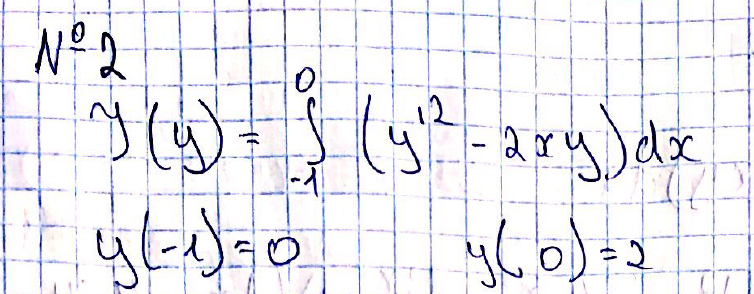 № 2
J(y) = ∫₋₁⁰ (y'² - 2xy) dx
y(-1) = 0 y(0) = 2